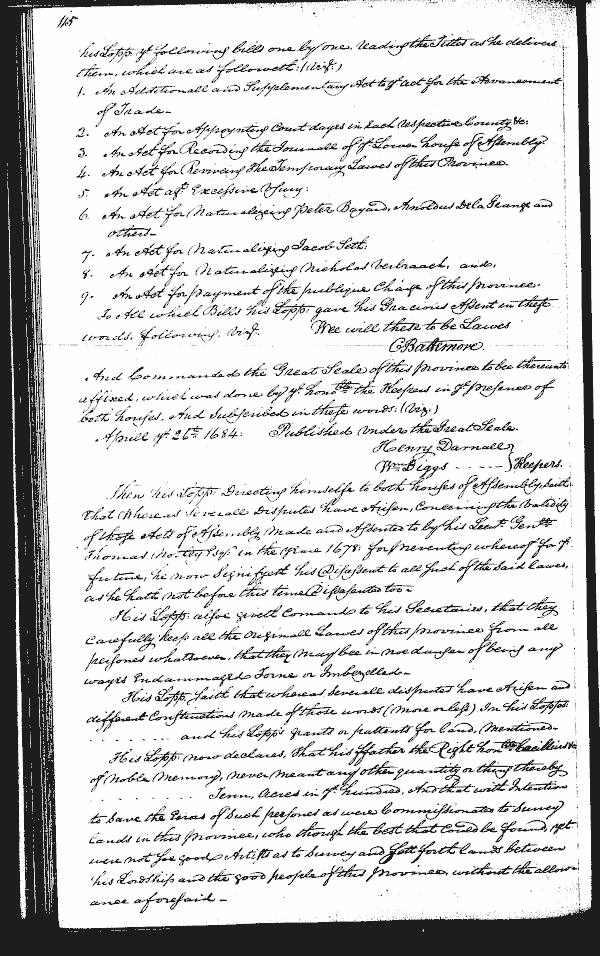 115
his Lopp ye following bills one by one, reading the Titles as he delivers
them, which are as followeth: (Vizt)
1. An Additionall and Supplementary Act to ye act for the Advancement
of Trade.
2. An Act for Appoynting Court dayes in Each Respective County &c.
3. An Act for Recording the Journall of ye Lower house of Assembly.
4. An Act for Reviving the Temporary Lawes of this Province.
5. An Act agt Excessive Usury.
6. An Act for Naturalizeing Peter Bayard, Arnoldus De la Grange and
others.
7. An Act for Naturalizing Jacob Seth.
8. An Act for Naturalizing Nicholas Verbraach, and,
9. An Act for payment of the publique Charge of this Province.
To All which Bills his Lopp: gave his Gracious Assent in these
words, following, Vizt. Wee will these to be Lawes
C Baltemore.
And Commanded the Great Seale of this Province to bee thereunto
affixed, which was done by ye honoble the Keepers in ye presence of
both houses, And Subscribed in these words: (Viz.)
Aprill ye 26th 1684: Published Under the Great Seale.
Henry Darnall
Wm Diggs - - - - - Keepers.
Then his Lopp: Directing himselfe to both houses of Assembly, Saith
that Whereas Severall Disputes have Arisen, Concerning the Validity
of those Acts of Assembly Made and Assented to by his Leut Genll
Thomas Notley Esqr in the yeare 1678: for preventing whereof for ye
future, he now Signifyeth his Disassent to all Such of the Said lawes,
as he hath not before this time Disassented too.
His Lopp: alsoe giveth Comand to his Secretaries, that they
Carefully keep all the Originall Lawes of this Province from all
persones whatsoever, that they may bee in noe danger of being any
wayes Endammaged Torne or Imbezelled.
His Lopp: saith that whereas Severall disputes have Arisen and
different Constructions made of those words (more or less) In his Lopps
and his Lopp's grants or pattents for land, Mentioned.
His Lopp: now declares, That his ffather the Right honble Cecilius &c
of Noble Memory, never meant any other quantity or thing thereby
Tenn, Acres in ye hundred, And that with Intention
to Save the Eros of Such persones as were Commissionated to Survey
lands in this Province, who though the best that Could be found, yet
were not soe good Artists as to Survey and Sett forth lands between
his Lordship and the good people of this Province, without the allow-
ance aforesaid -